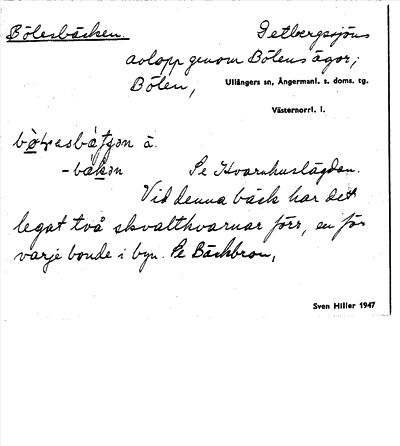 Bölesbäcken. Detbergssjöns
avlopp genom Bölens ägor;
Bölen, Ullångers sn, Ångermanl. s. doms. tg.
Västernorrl. l.
å.
Se Kvarnhuslägdan.
Vid denna bäck har det
legat två skvaltkvarnar förr, en för
varje bonde i byn. Se Bäckbron,
Sven Hiller 1947